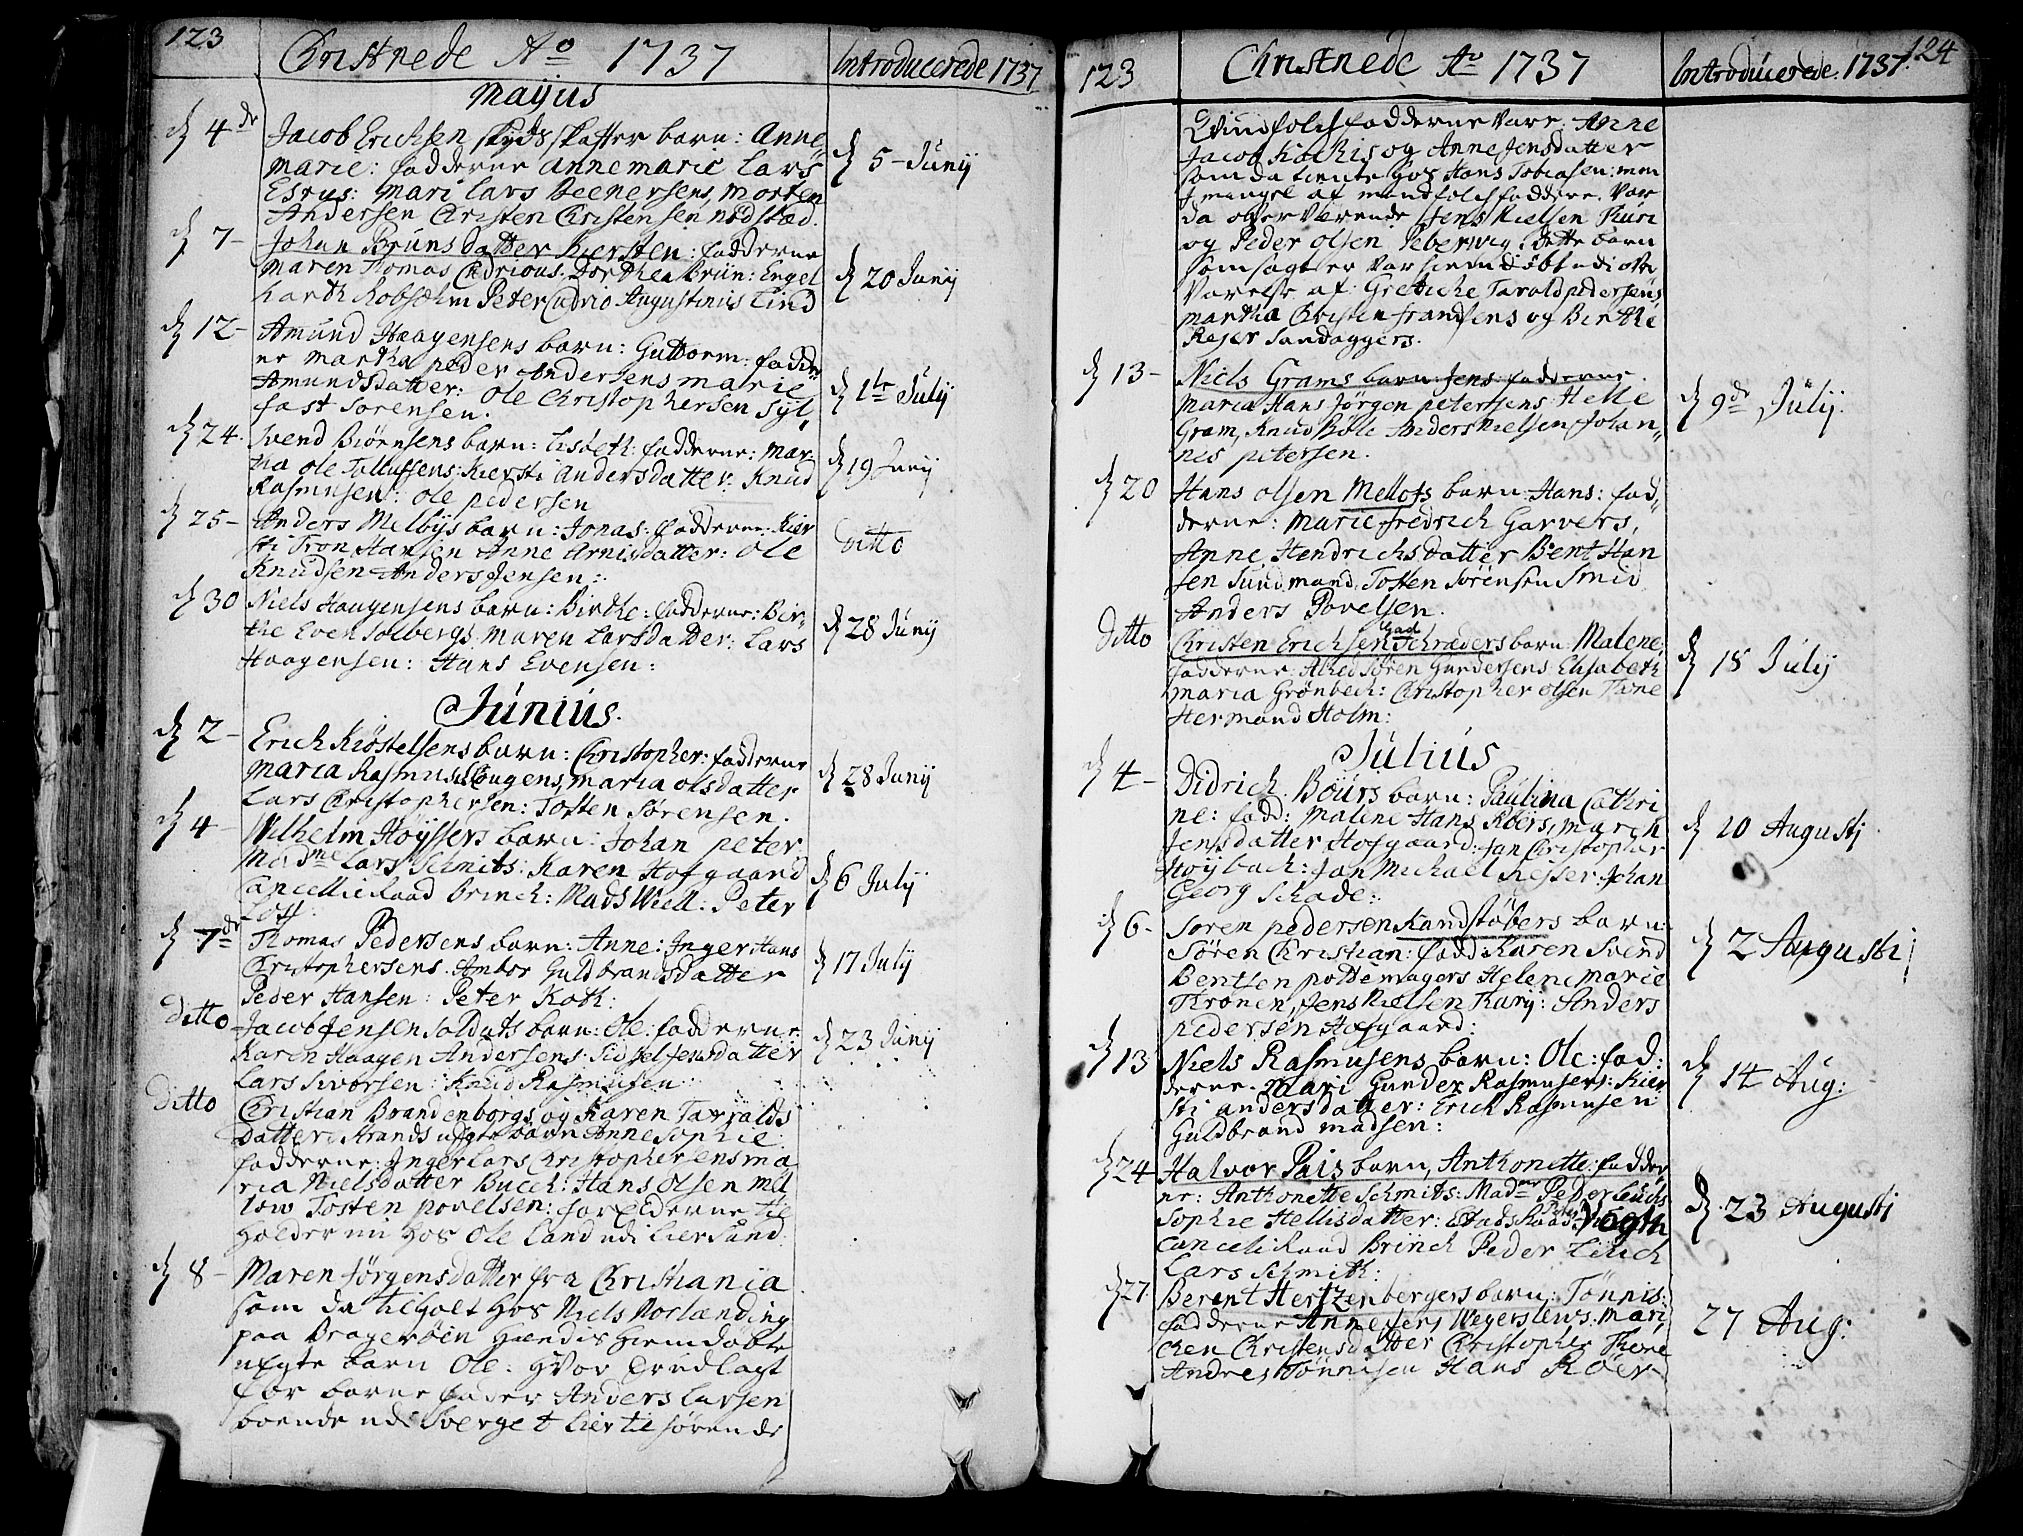 123
Christnede Ao 1737
Introducerede 1737
Maijus
4de
Jacob Erichsen skyds skaffer barn: Anne
marie: fadderne Annemarie Lars
Esrus: Mari Lars Morten
Andersen Christen Christensen
5 - Junij
7 -
Johan Bruns datter Kiersten: fadderne
Maren Thomas Dorthea Brun: Engel
Peter Augustinus Lind
20 Junij
12 -
Amund Haagensens barn: Guttorm: fadder
ne Martha peder Andersens marie
Amundsdatter: Ole Christophersen Syl
fast Sørensen.
1te Julij
24.
Svend Biørnsens barn: Lisbeth: fadderne: Mar-
tha ole Tollufsens: Kiersti Andersdatter: Knud
Rasmusen: Ole pedersen
19 Junij
25 -
Anders Melbijs barn: Jonas: fadderne: Kier
sti Tron Hansen Anne Arnisdatter: Ole
Knudsen Anders Jensen:
Ditto
30
Niels Haagensens barn: Birthe: fadderne: Bir-
the Even Solbergs Maren Larsdatter: Lars
Haagensen: Hans Evensen:
28 Junij
Junius.
2 -
Erich Kiøstelsens barn: Christopher: fadderne
Maria Rasmus Maria Olsdatter
Lars Christophersen: Tosten Sørensen.
28 Junij
4 -
Wilhelm Høyssers barn: Johan peter
Madme Lars Schmits: Karen Hofgaard
Cancellie Raad Brinch: Mads Wiell: Peter
6 Julij
7de
Thomas Pedersens barn: Anne: Inger Hans
Christophersens Ambor Guldbrandsdatter
Peder Hansen: Peter Koth:
17 Julij
Ditto
Jacob Jensen Soldats barn: Ole: fadderne
Karen Haagen Andersens Sidsel Jensdatter
Lars Siversen: Knud Rasmusen
23 Junij
Ditto
Christian Brandenborgs og Karen Taralds
datter Strands uegte barn Anne Sophie:
fadderne: Inger Lars Christophersens ma
ria Nielsdatter Buch: Hans Olsen
Tosten povelsen: forelderne til
holder nu hos Ole Land udi Liersund
8 -
Maren Jørgensdatter fra Christiania
som da tilholt hos Niels Norlanding
paa Bragerøen Hendis Hiemdøbte
uegte barn Ole: Hvor udlagt
for barne fader Anders Larsen
boende udi Sverget Lier til sørende
123
Christnede Ao 1737
Introducerede 1737.
124
Qvindfolch fadderne vare: Anne
Jacob Kochis og Anne Jensdatter
som da tiente hos Hans Tobiasen: men
J mangel af mandfolch faddere var
da overværende Jens Nielsen
og Peder Olsen Peberweg: Dette barn
som sagt er var hiemdøbt udi over
værelse af Gretiche Tarald pedersens
Martha Christen Frandsens og Birthe
Rejer Sandaggers.
13 -
Niels Grams barn: Jens: fadderne
Maria Hans Jørgen petersens Helle
Gram, Knud Anders Nielsen Johan-
nes petersen.
9de Julij.
20
Hans olsen Mellots barn Hans: fad-
derne: Marie fredrich Garvers,
Anne Hendrichsdatter Bent Han
sen Sundmand, Tosten Sørensen Smid
Anders Povelsen.
Ditto
Christen Erichsen Schræders barn: Malene:
fadderne Søren Gundersens Elisabeth
maria Grønbech: Christopher olsen
Hermand Holm:
15 Julij
Julius
4 -
Didrich Bøurs barn: Paulina Cathri
ne: fadd: Malene Hans Røers, maren
Jensdatter Hofgaard: Jan Christopher
Høybach: Jan Michael Rejser: Johan
Georg Schade:
10 Augusti
6 -
Søren pedersen Kandstøbers barn
Søren Christian: fadd: Karen Svend
Bentsen pottemagers Helene marie
Thronen, Jens Nielsen Anders
pedersen Hofgaard:
2 Augusti
13
Niels Rasmusens barn: Ole: fad:
derne. Mari Gunder Rasmusens: Kier
sti andersdatter: Erich Rasmusen
Guldbrand madsen:
14 Aug:
24
Halvor Pais barn, Anthonette: fadder
ne: Anthonette Schmits: Madme Peder
Sophie Hellisdatter: Vogth
Cancelie Raad Brinch Peder
Lars Schmith:
23 Augusti
27.
Berent Hertzenbergers barn: Tønnis:
fadderne Anne Jens Wegerslews: mari
chen Christensdatter Christopher
Andres Tønnisen Hans Røer
27 Aug: